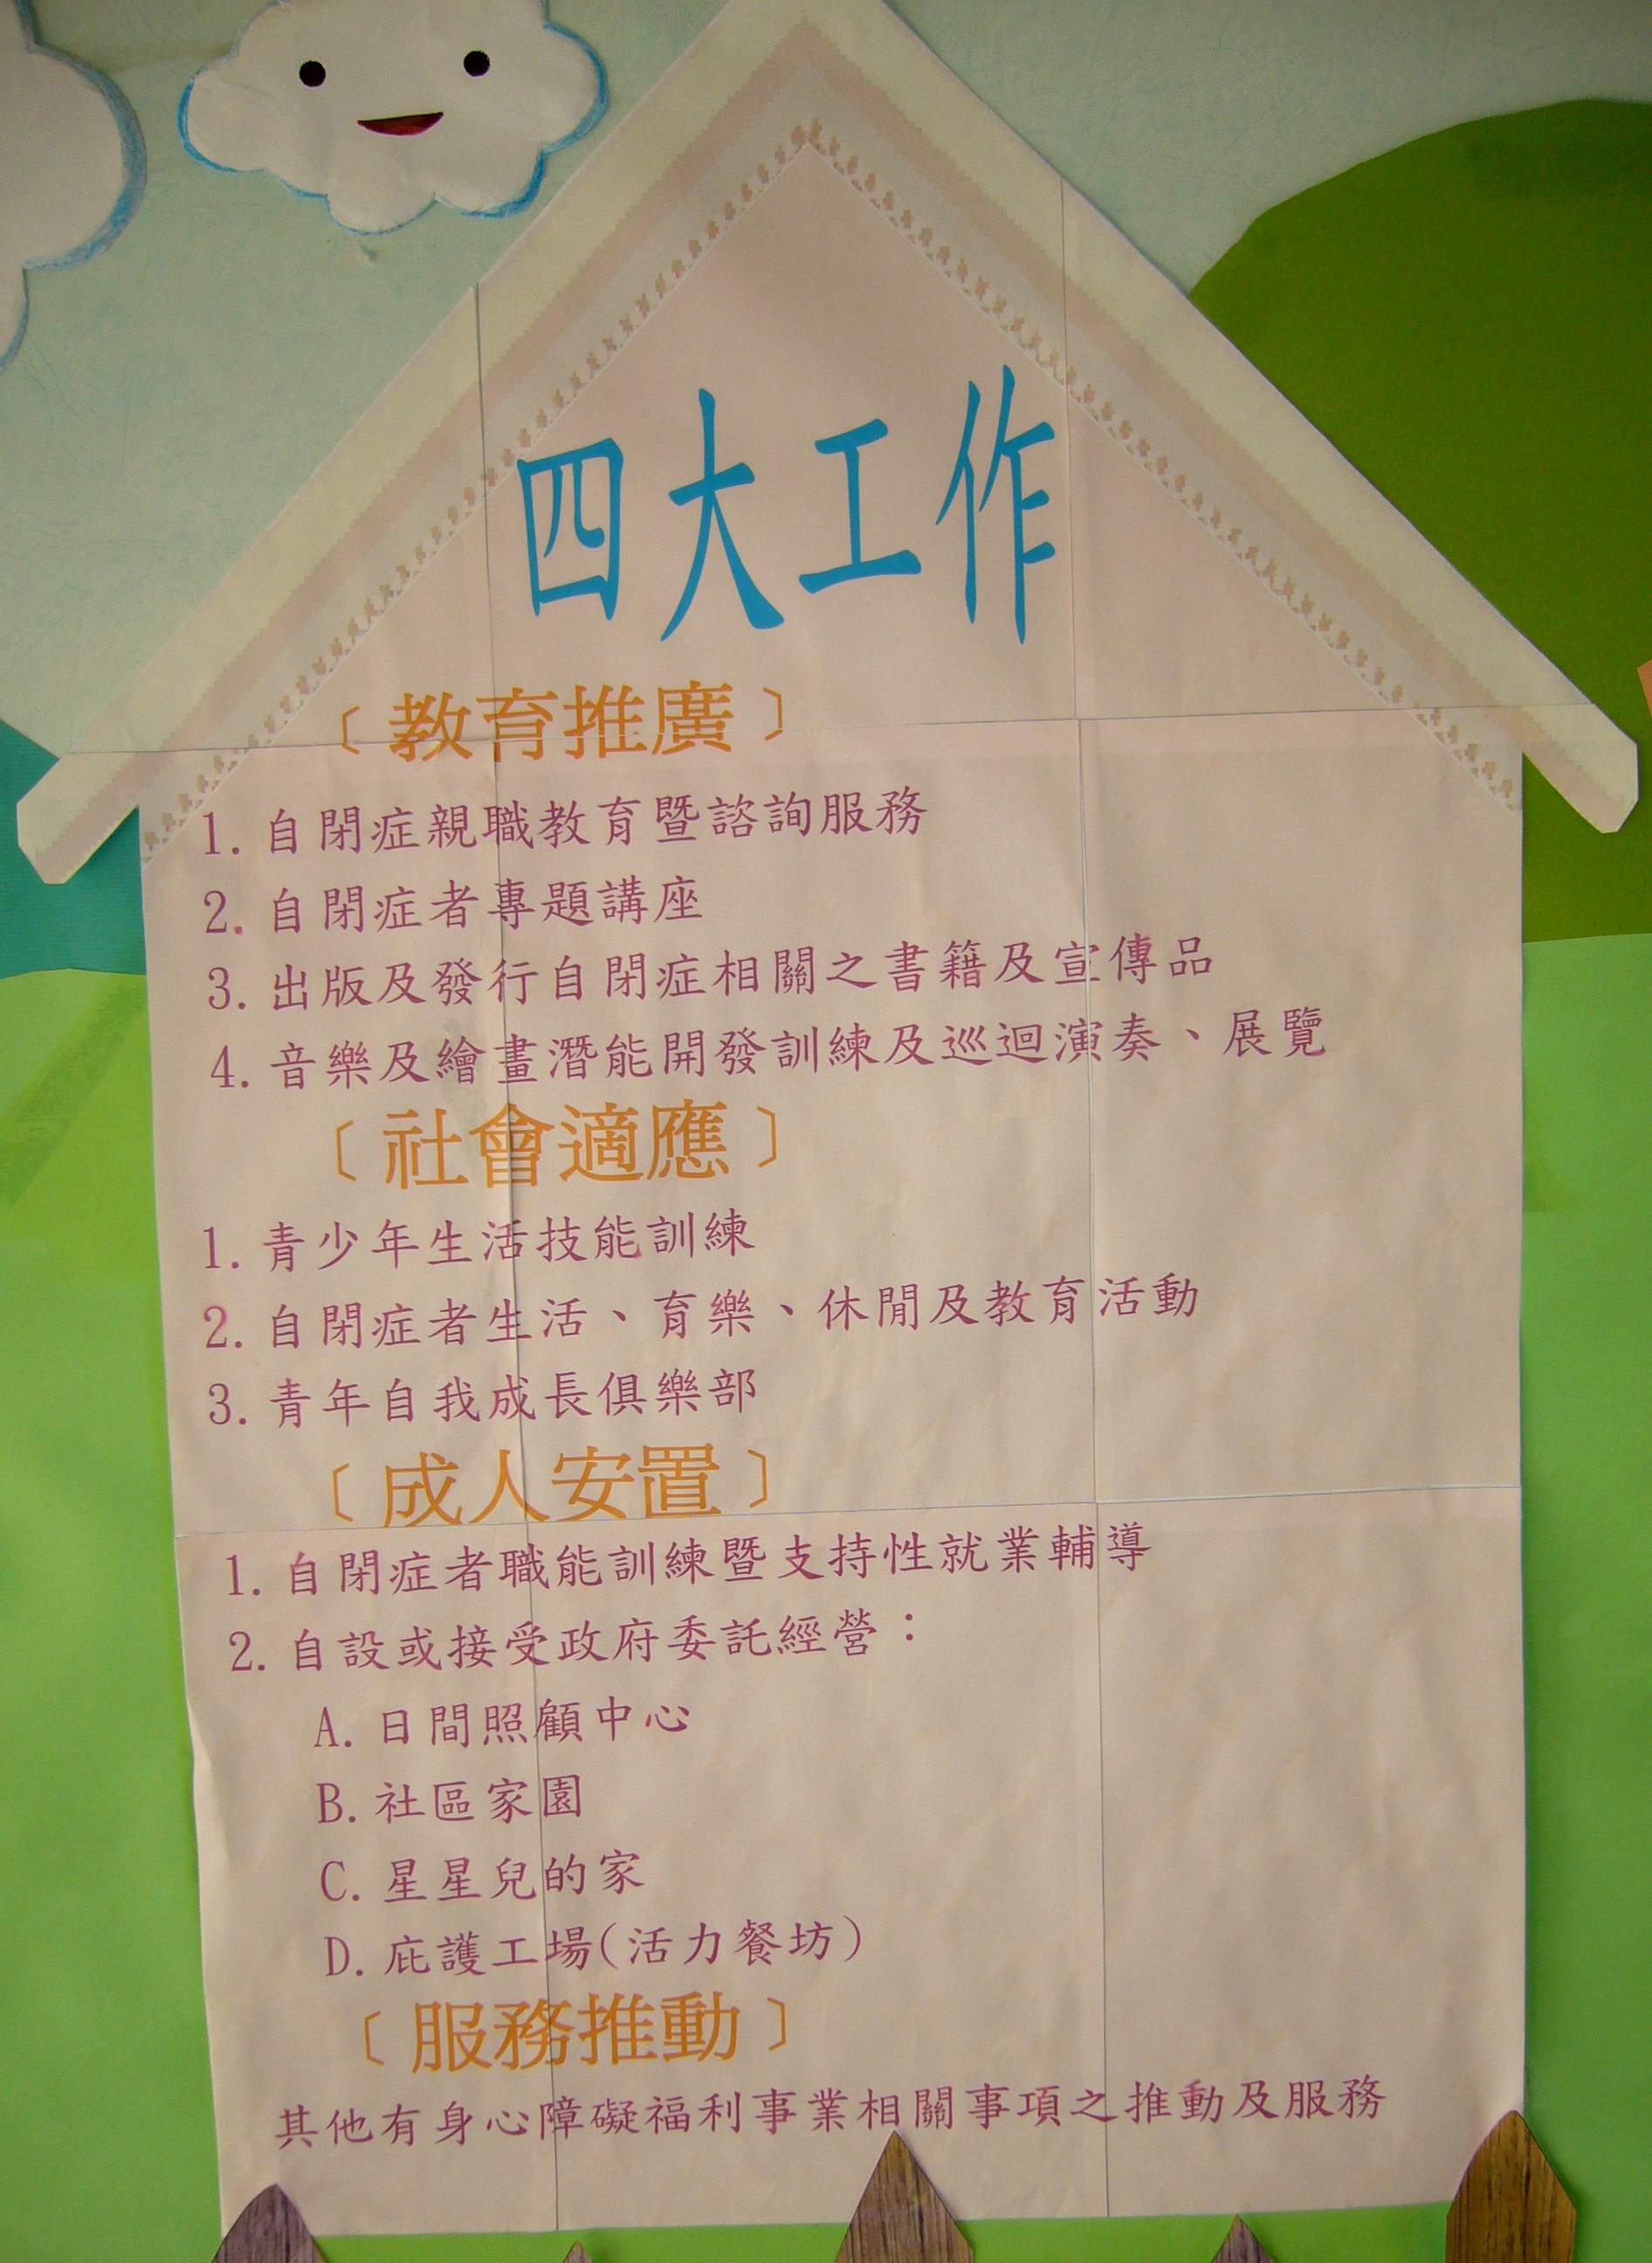 四大工作
〔教育推廣〕
1. 自閉症親職教育暨諮詢服務
2. 自閉症者專題講座
3. 出版及發行自閉症相關之書籍及宣傳品
4. 音樂及繪畫潛能開發訓練及巡迴演奏、展覽
〔社會適應〕
1. 青少年生活技能訓練
2. 自閉症者生活、育樂、休閒及教育活動
3. 青年自我成長俱樂部
〔成人安置〕
1. 自閉症者職能訓練暨支持性就業輔導
2. 自設或接受政府委託經營：
A. 日間照顧中心
B. 社區家園
C. 星星兒的家
D. 庇護工場(活力餐坊)
〔服務推動〕
其他有身心障礙福利事業相關事項之推動及服務